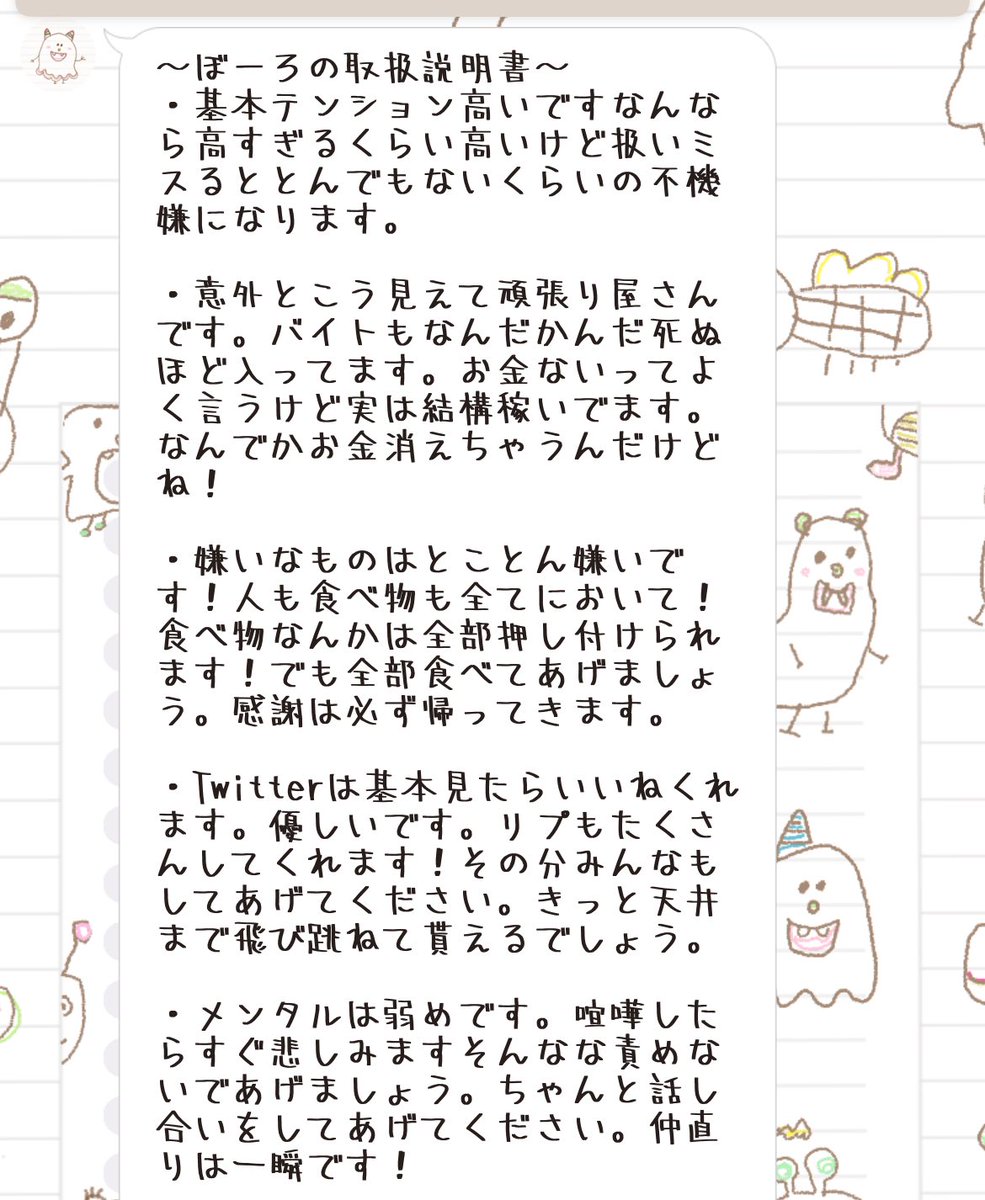 〜ぼーろの取扱説明書〜
・基本テンション高いですなんな
ら高すぎるくらい高いけど扱いミ
スるととんでもないくらいの不機
嫌になります。
・意外とこう見えて頑張り屋さん
です。バイトもなんだかんだ死ぬ
ほど入ってます。お金ないってよ
く言うけど実は結構稼いでます。
なんでかお金消えちゃうんだけど
ね！
・嫌いなものはとことん嫌いで
す！人も食べ物も全てにおいて！
食べ物なんかは全部押し付けられ
ます！でも全部食べてあげましょ
う。感謝は必ず帰ってきます。
・Twitterは基本見たらいいねくれ
ます。優しいです。リプもたくさ
んしてくれます！その分みんなも
してあげてください。きっと天井
まで飛び跳ねて貰えるでしょう。
・メンタルは弱めです。喧嘩した
らすぐ悲しみますそんなな責めな
いであげましょう。ちゃんと話し
合いをしてあげてください。仲直
りは一瞬です！